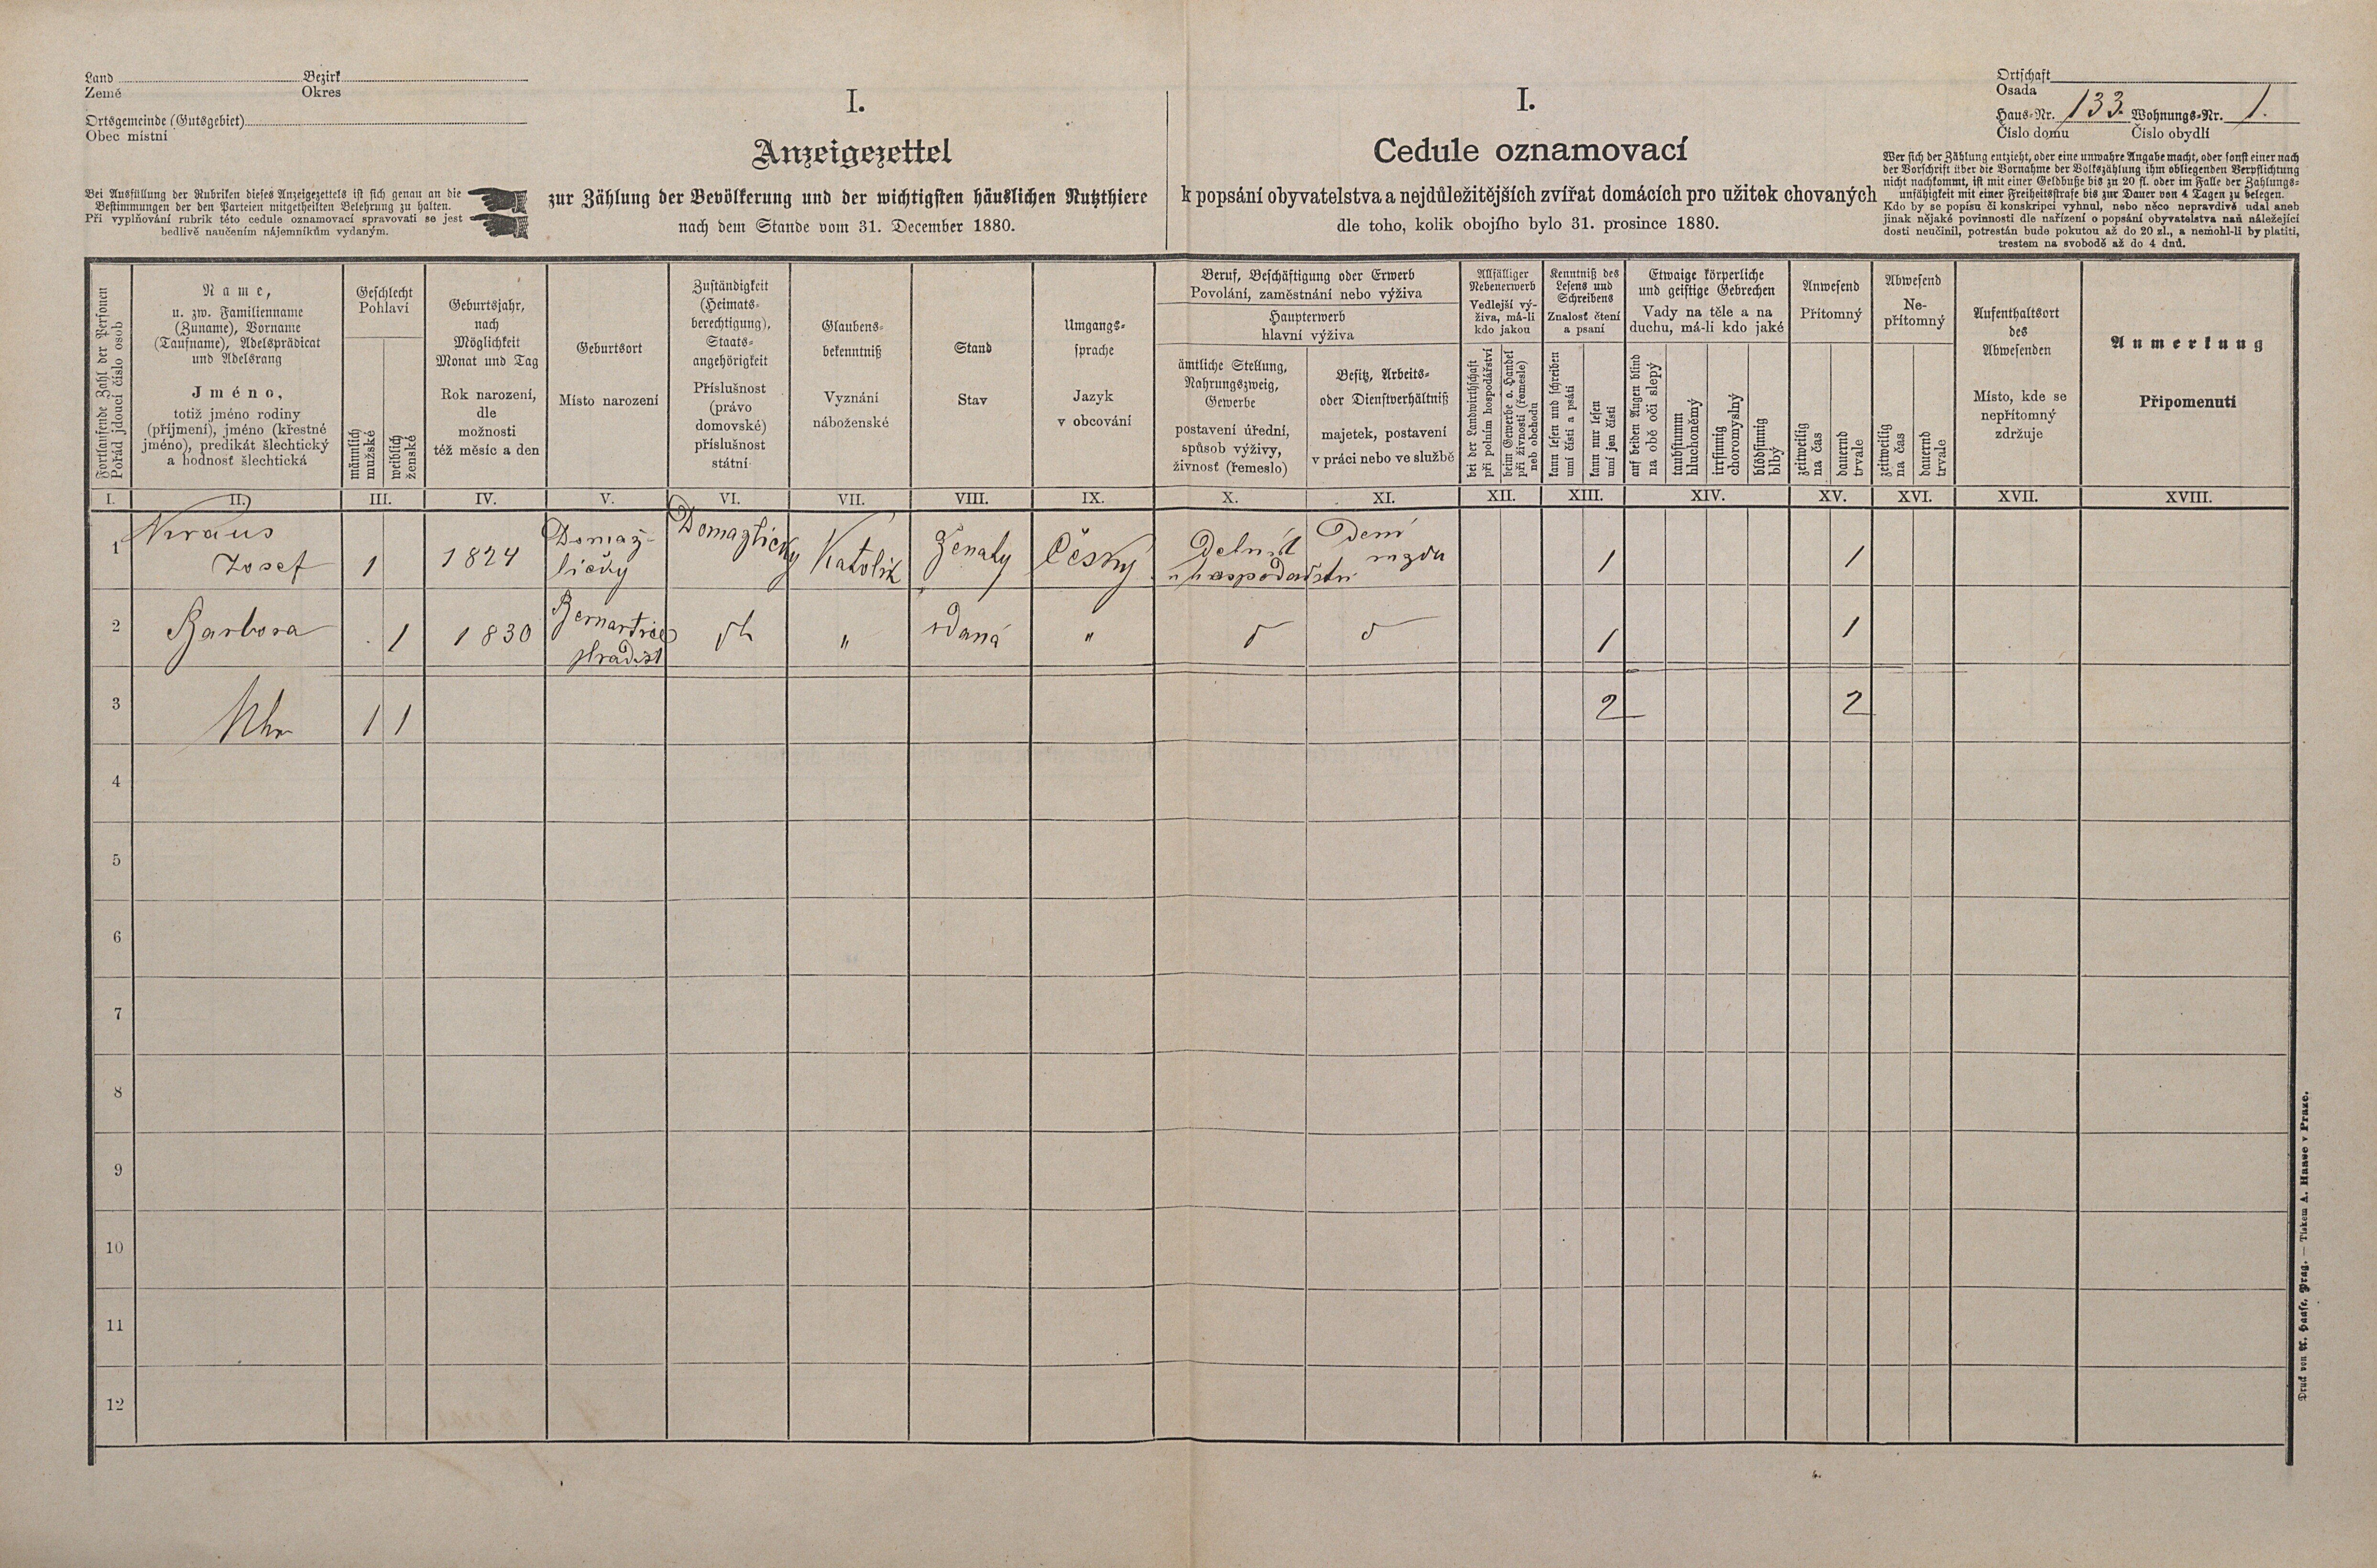 Land Bezirk
Země Okres
Ortsgemeinde (Gutsgebiet)
Obec místní
Bei Ausfüllung der Rubriken dieses Anzeigezettels ist sich genau an die
Bestimmungen der den Parteien mitgetheilten Belehrung zu halten.
Při vyplňování rubrik této cedule oznamovací spravovati se jest
bedlivě naučením nájemníkům vydaným.
I.
Anzeigezettel
zur Zählung der Bevölkerung und der wichtigsten häuslichen Nutzthiere
nach dem Stande vom 31. December 1880.
I.
Cedule oznamovací
k popsání obyvatelstva a nejdůležitějších zvířat domácích pro užitek chovaných
dle toho, kolik obojího bylo 31. prosince 1880.
Ortschaft
Osada
Haus-Nr. 133. Wohnungs-Nr. 1.
Číslo domu Číslo obydlí
Wer sich der Zählung entzieht, oder eine unwahre Angabe macht, oder sonst einer nach
der Vorschrift über die Vornahme der Volkszählung ihm obliegenden Verpflichtung
nicht nachkommt, ist mit einer Geldbuße bis zu 20 fl. oder im Falle der Zahlungs-
unfähigkeit mit einer Freiheitsstrafe bis zur Dauer von 4 Tagen zu belegen.
Kdo by se popisu či konskripci vyhnul, nebo něco nepravdivě udal aneb
jinak nějaké povinnosti dle nařízení o popsání obyvatelstva naň náležející
dosti neučinil, potrestán bude pokutou až do 20 zl., a nemohl-li by platiti,
trestem na svobodě až do 4 dnů.
Fortlaufende Zahl der Personen
Pořád jdoucí číslo osob
Name,
u. zw. Familienname
(Zuname), Vorname
(Taufname), Adelsprädicat
und Adelsrang
Jméno,
totiž jméno rodiny
(příjmení), jméno (křestné
jméno), predikát šlechtický
a hodnosť šlechtická
Geschlecht
Pohlaví
männlich
mužské
weiblich
ženské
Geburtsjahr,
nach
Möglichkeit
Monat und Tag
Rok narození,
dle
možnosti
též měsíc a den
Geburtsort
Místo narození
Zuständigkeit
(Heimats-
berechtigung),
Staats-
angehörigkeit
Příslušnost
(právo
domovské)
příslušnost
státní
Glaubens-
bekenntniß
Vyznání
náboženské
Stand
Stav
Umgangs-
sprache
Jazyk
v obcování
Beruf, Beschäftigung oder Erwerb
Povolání, zaměstnání nebo výživa
Haupterwerb
hlavní výživa
ämtliche Stellung,
Nahrungszweig,
Gewerbe
postavení úřední,
spůsob výživy,
živnosť (řemeslo)
Besitz, Arbeits-
oder Dienstverhältniß
majetek, postavení
v práci nebo ve službě
Allfälliger
Nebenerwerb
Vedlejší vý-
živa, má-li
kdo jakou
bei der Landwirthschaft
při polním hospodářství
beim Gewerbe o. Handel
při živnosti (řemesle)
neb obchodu
Kenntniß des
Lesens und
Schreibens
Znalost čtení
a psaní
kann lesen und schreiben
umí čísti a psáti
kann nur lesen
umí jen čísti
Etwaige körperliche
und geistige Gebrechen
Vady na těle a na
duchu, má-li kdo jaké
auf beiden Augen blind
na obě oči slepý
taubstumm
hluchoněmý
irrsinnig
choromyslný
blödsinnig
blbý
Anwesend
Přítomný
zeitweilig
na čas
dauernd
trvale
Abwesend
Ne-
přítomný
zeitweilig
na čas
dauernd
trvale
Aufenthaltsort
des
Abwesenden
Místo, kde se
nepřítomný
zdržuje
Anmerkung
Připomenutí
I. II. III. IV. V. VI. VII. VIII. IX. X. XI. XII. XIII. XIV. XV. XVI. XVII. XVIII.
Kraus Domaž- Domažlický Dení
1 Josef 1 1824 ličky Katolik Ženatý Český Delník mzda 1 1
2 Barbora 1 1830 Bernartice " vdaná " 1 1
Hradist
3 1 1 2 2
4
5
6
7
8
9
10
11
12
Druck von A. Haase, Prag. — Tiskem A. Haase v Praze.